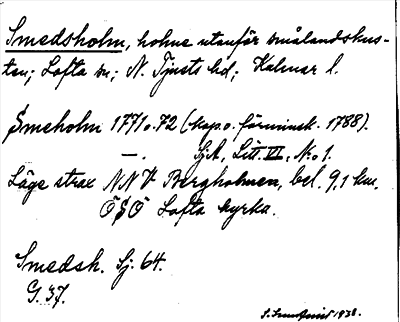 Smedsholm, holme utanför smålandskus-
ten; Lofta sn; N. Tjusts hd; Kalmar l.
Smeholm 1771 o. 72 (Kap. o. förminsk. 1788).
—. Sj.A, Litt. VI, No 1.
Läge strax NNV Bergholmen, bel. 9,1 km.
ÖSÖ Lofta kyrka.
Smedsh. Sj. 64.
G. 37.
1938.